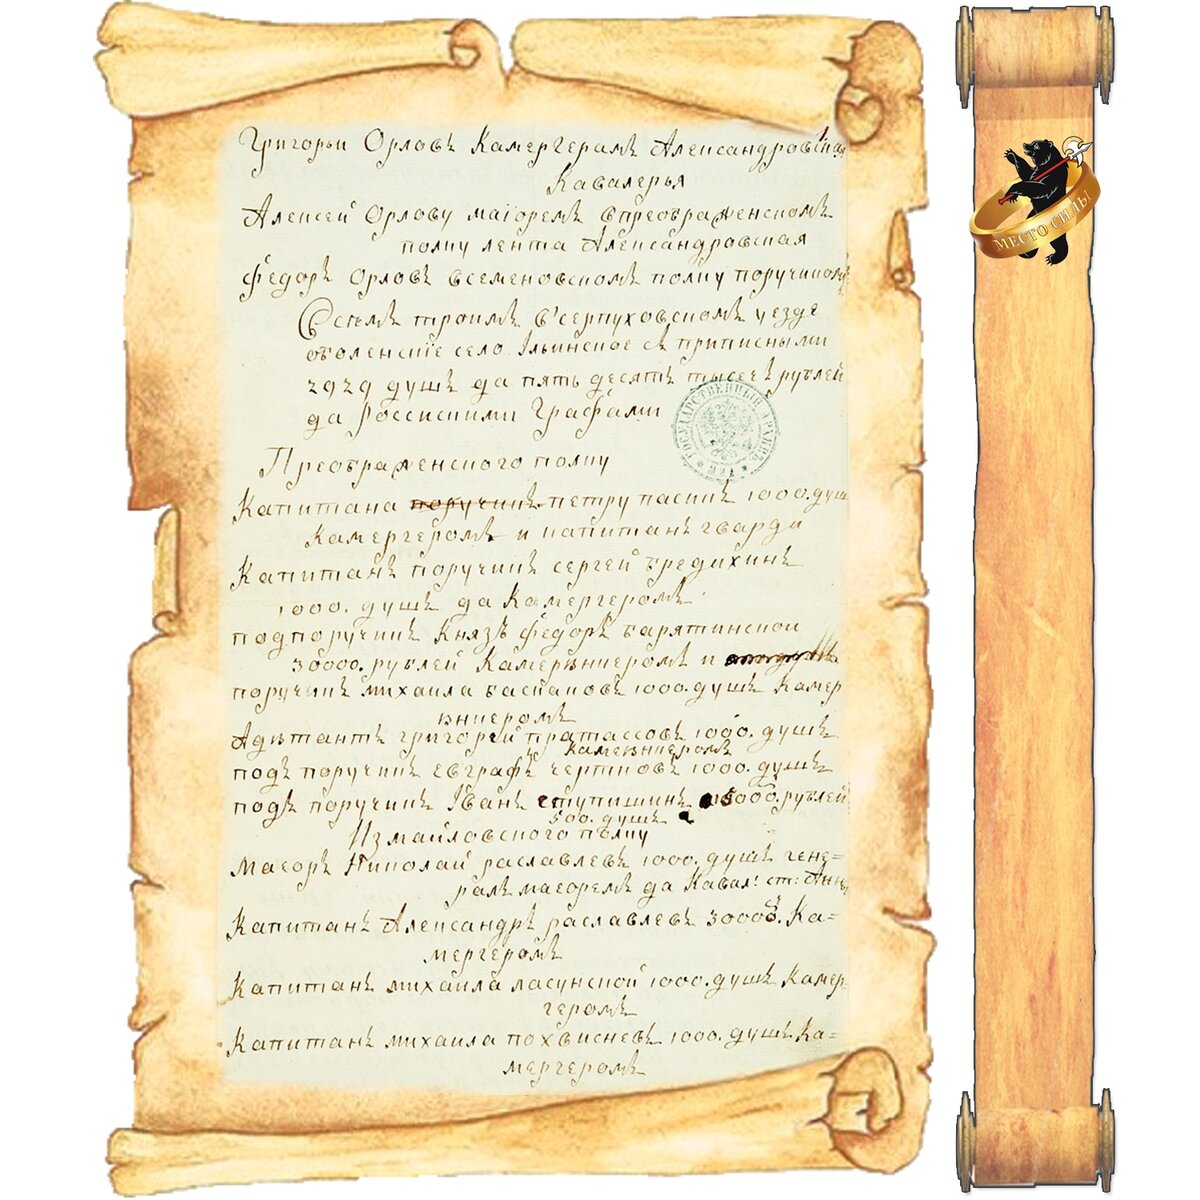 Григорьи Орловъ Камергеромъ Александровская
Кавалерья
Алексей Орлову маіоремъ впреображенскомъ
полку лента Александровская
Федоръ Орловъ всеменовскомъ полку поручикомъ
Всѣмъ троимъ в'серпуховскомъ уезде
оболенские село Ільинское съ приписными
2929 душъ да пять десятъ тысечъ рублей
да Россискими Графами
ГОСУДАРСТВЕННЫЙ АРХИВЪ
Преображенского полку
Капитана поручикъ петру пасикъ 1000. душ
Камергеромъ и капитанъ гварди
Капитанъ поручикъ сергей бредихинъ
1000. душъ да Камергеромъ.
подпоручикъ Князъ Федоръ барятинской
30000. рублей Камерюнкеромъ и
поручикъ михаила баскаковъ 1000. душъ Камер
юнкеромъ
Адютантъ григорей пратассовъ 1000. душъ
камеюнкеромъ
подъ поручикъ евграфъ чертковъ 1000. душъ
подъ поручикъ Іванъ ступишинъ 15000. рублей
500. душъ
Измайловского пълку
Маеоръ Николай раславлевъ 1000. душъ гене=
ралъ маеоремъ да Кавал: ст: Анны
Капитанъ Александръ раславлевъ 30000. Ка=
мергеромъ
Капитанъ михаила ласунской 1000. душъ Камер
геромъ
Капитанъ михаила похвисневъ 1000. душъ Ка=
мергеромъ
МЕСТО СИЛЫ!